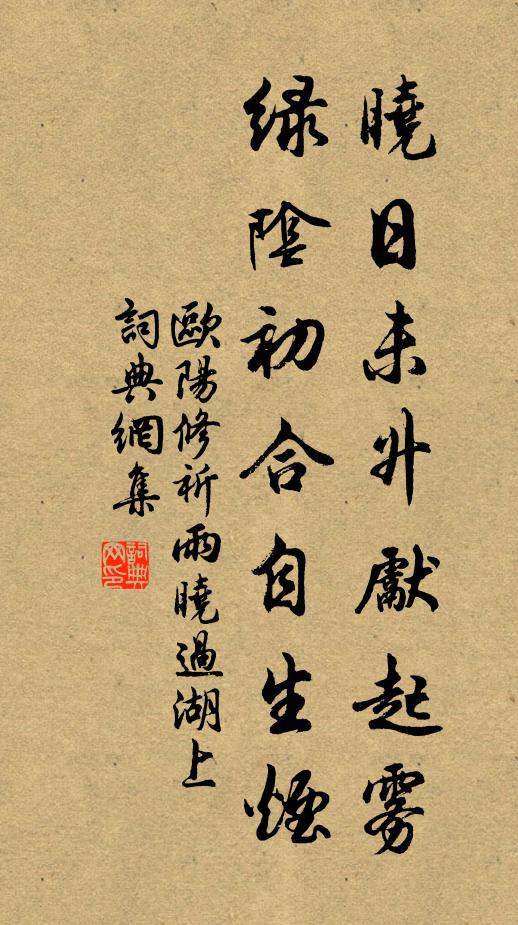 曉日未升獻起雾
緑陰初合自生煙
歐陽修祈雨曉過湖上
詞典網集
詞典网印